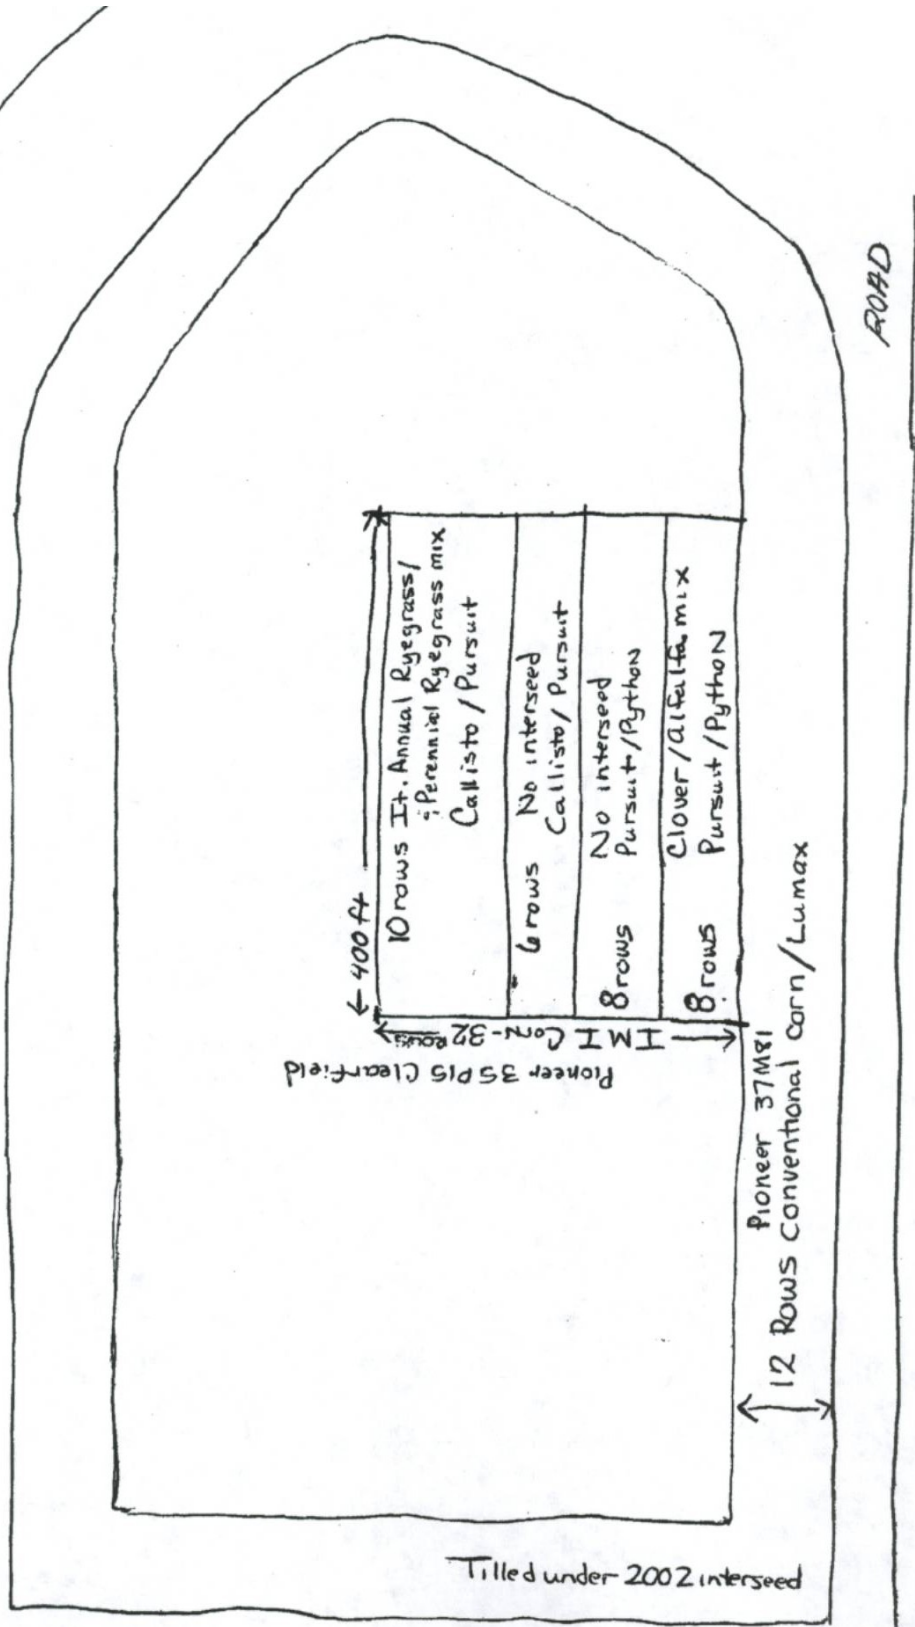 ROAD
← 400 ft →
10 rows It. Annual Ryegrass/
: Perennial Ryegrass mix
Callisto / Pursuit
6 rows No interseed
Callisto / Pursuit
No interseed
8 rows Pursuit/Python
Clover/alfalfa mix
8 rows Pursuit/Python
IMI Corn - 32 Rows
Pioneer 35P15 Clearfield
Pioneer 37M81
12 Rows Conventional Corn/Lumax
Tilled under 2002 interseed